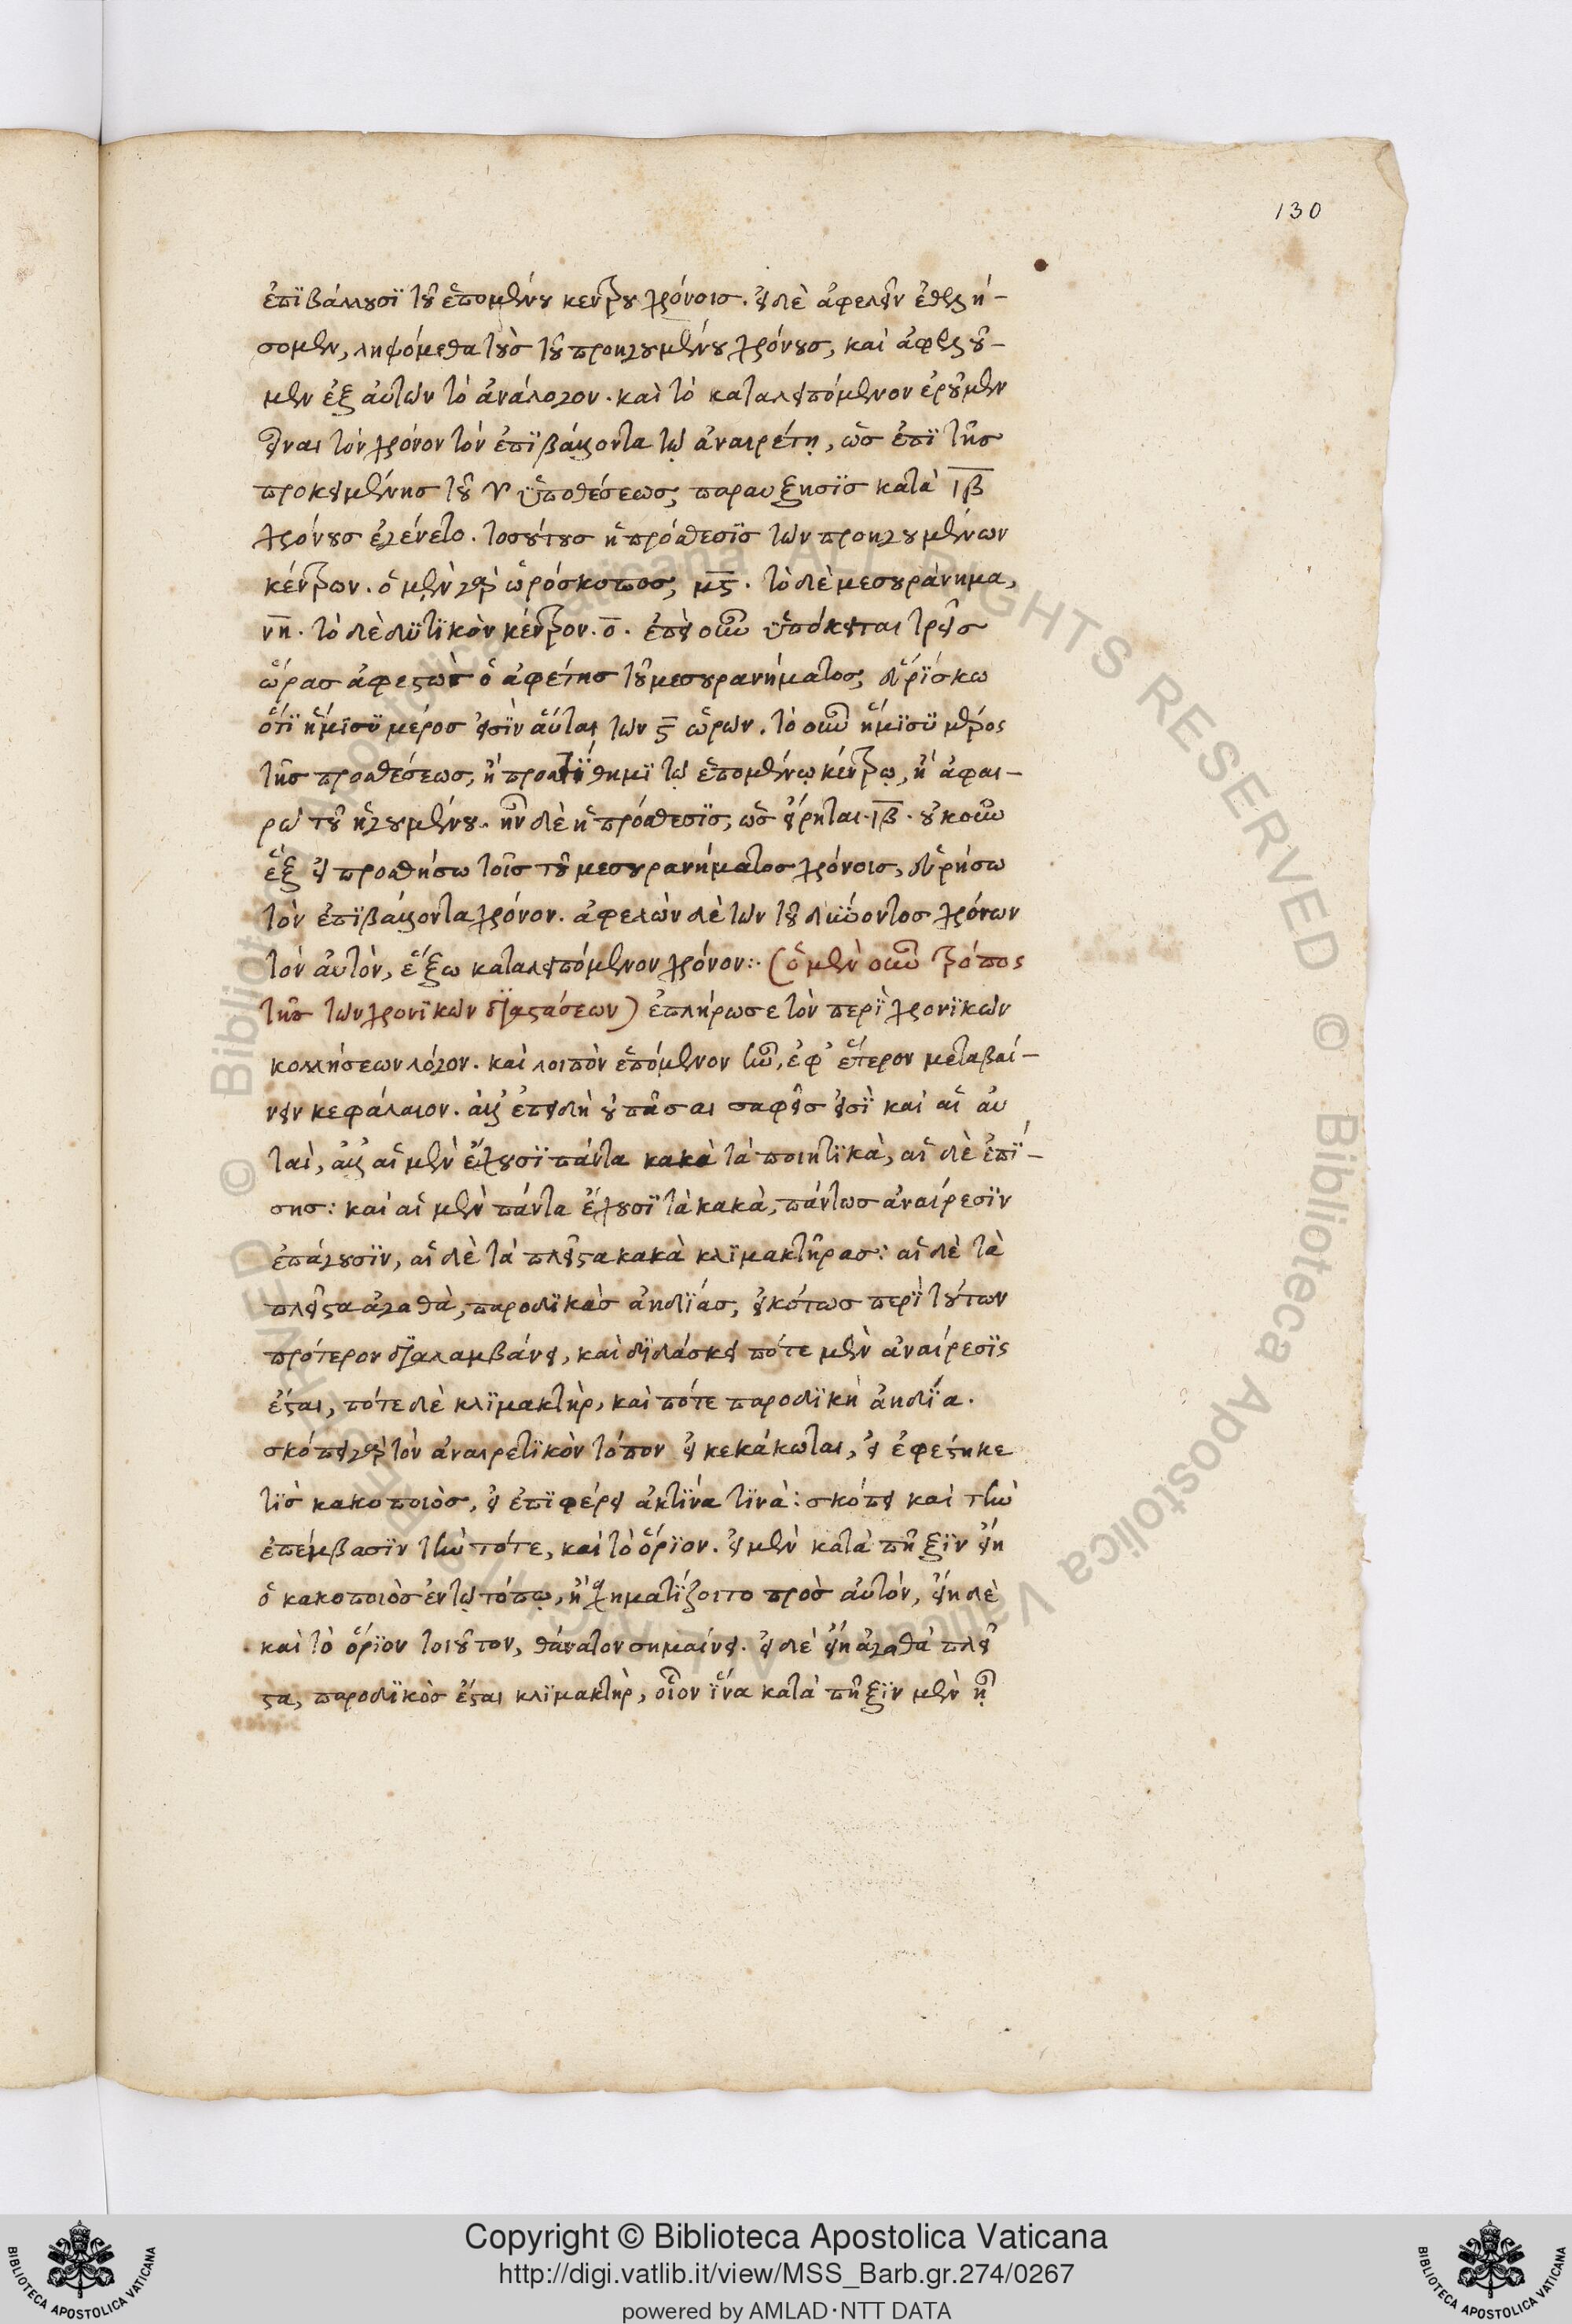 130
ἐπιβάλλουσι τοῦ ἑπομένου κέντρου χρόνοις. εἰ δὲ ἀφελεῖν ἐθελή-
σομεν, ληψόμεθα τοὺς τοῦ προηγουμένου χρόνους, καὶ ἀφελοῦ-
μεν ἐξ αὐτῶν τὸ ἀνάλογον. καὶ τὸ καταλειπόμενον ἐροῦμεν
εἶναι τὸν χρόνον τὸν ἐπιβάλλοντα τῷ ἀναιρέτῃ, ὡς ἐπὶ τῆς
προκειμένης τοῦ ♈ ὑποθέσεως, παραυξησις κατὰ ιβ
χρόνους ἐγένετο. τοσούτους ἡ πρόσθεσις τῶν προηγουμένων
κέντρων. ὁ μὲν γὰρ ὡρόσκοπος, μϛ. τὸ δὲ μεσουράνημα,
νη. τὸ δὲ δυτικὸν κέντρον. ο. ἐπεὶ οὖν ὑπόκειται τρεῖς
ὥρας ἀφεστὼς ὁ ἀφέτης τοῦ μεσουρανήματος, εὑρίσκω
ὅτι ἥμισυ μέρος εἰσὶν αὗται τῶν ϛ ὡρῶν. τὸ οὖν ἥμισυ μέρος
τῆς προσθέσεως, ἢ προστίθημι τῷ ἑπομένῳ κέντρῳ, ἢ ἀφαι-
ρῶ τοῦ ἡγουμένου. ἦν δὲ ἡ πρόσθεσις, ὡς εἴρηται. ιβ. οὐκοῦν
ἓξ εἰ προσθήσω τοῖς τοῦ μεσουρανήματος χρόνοις, εὑρήσω
τὸν ἐπιβάλλοντα χρόνον. ἀφελὼν δὲ τῶν τοῦ δύνοντος χρόνων
τὸν αὐτὸν, ἕξω καταλειπόμενον χρόνον:· (ὁ μὲν οὖν τρόπος
τῆς τῶν χρονικῶν διαστάσεων) ἐπλήρωσε τὸν περὶ χρονικῶν
κολλήσεων λόγον. καὶ λοιπὸν ἑπόμενον ἦν, ἐφ' ἕτερον μεταβαί-
νειν κεφάλαιον. ἀλλ' ἐπειδὴ οὐ πᾶσαι σαφεῖς εἰσὶ καὶ αἱ αὐ
ταὶ, ἀλλ' αἱ μὲν ἔχουσι πάντα κακὰ τὰ ποιητικὰ, αἱ δὲ ἐπί-
σης: καὶ αἱ μὲν πάντα ἔχουσι τὰ κακὰ, πάντως ἀναίρεσιν
ἐπάγουσιν, αἱ δὲ τὰ πλεῖστα κακὰ κλιμακτῆρας: αἱ δὲ τὰ
πλεῖστα ἀγαθὰ, παροδικὰς ἀηδίας, εἰκότως περὶ τούτων
πρότερον διαλαμβάνει, καὶ διδάσκει πότε μὲν ἀναίρεσις
ἔσται, πότε δὲ κλιμακτὴρ, καὶ πότε παροδικὴ ἀηδία.
σκόπει γὰρ τὸν ἀναιρετικὸν τόπον εἰ κεκάκωται, εἰ ἐφέστηκε
τὶς κακοποιὸς, εἰ ἐπιφέρει ἀκτῖνα τινὰ: σκόπει καὶ τὴν
ἐπέμβασιν τὴν τότε, καὶ τὸ ὅριον. εἰ μὲν κατὰ πῆξιν εἴη
ὁ κακοποιὸς ἐν τῷ τόπῳ, ἢ σχηματίζοιτο πρὸς αὐτὸν, εἴη δὲ
καὶ τὸ ὅριον τοιοῦτον, θάνατον σημαίνει. εἰ δὲ εἴη ἀγαθὰ πλεῖ
στα, παροδικὸς ἔσται κλιμακτὴρ, οἷον ἵνα κατὰ πῆξιν μὲν ᾖ
Copyright © Biblioteca Apostolica Vaticana
http://digi.vatlib.it/view/MSS_Barb.gr.274/0267
powered by AMLAD·NTT DATA